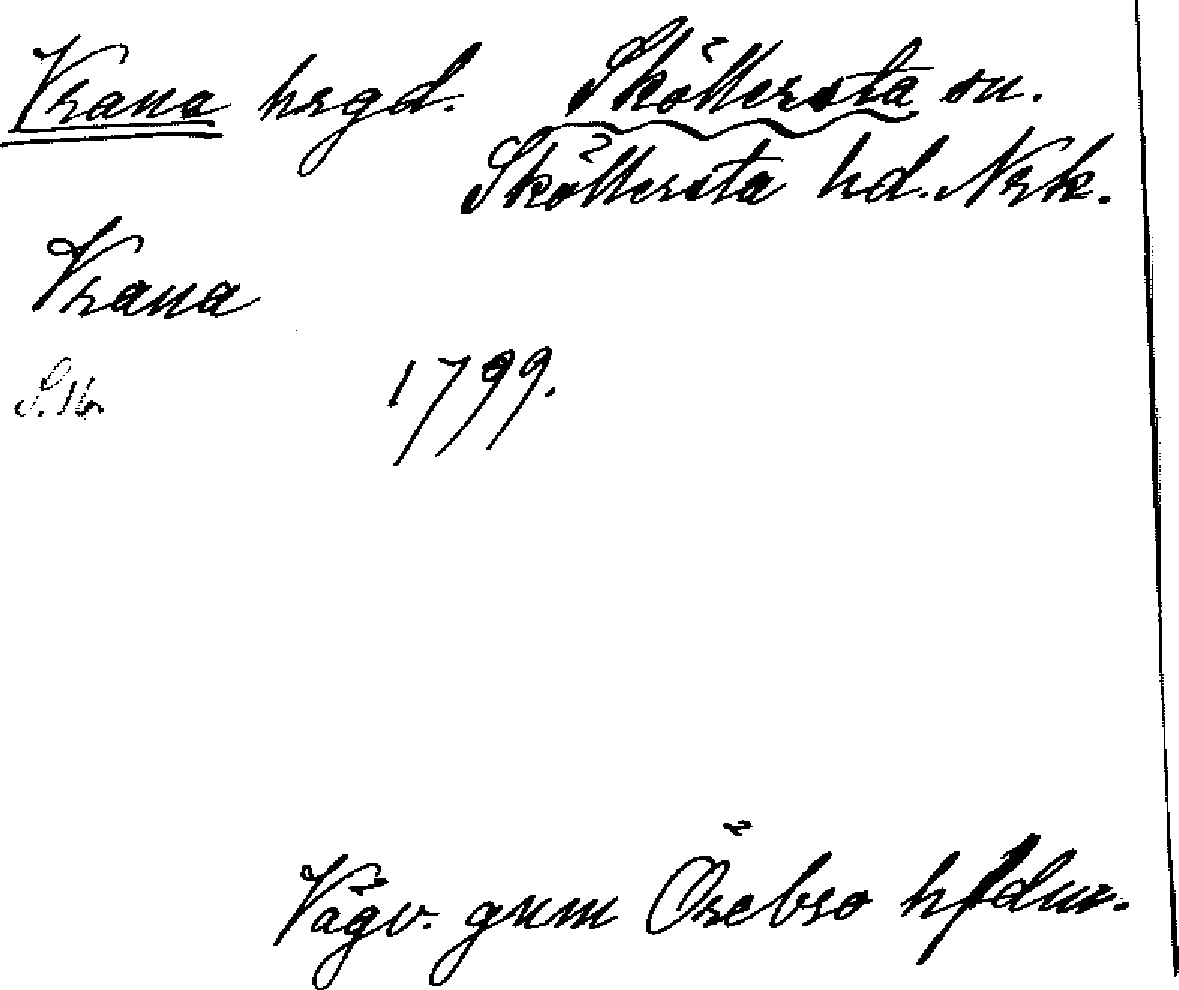 Vrana hrgd. Sköllersta sn.
Sköllersta hd. Nrk.
Vrana
1799.
Vägv. gnm Örebro hfdm.